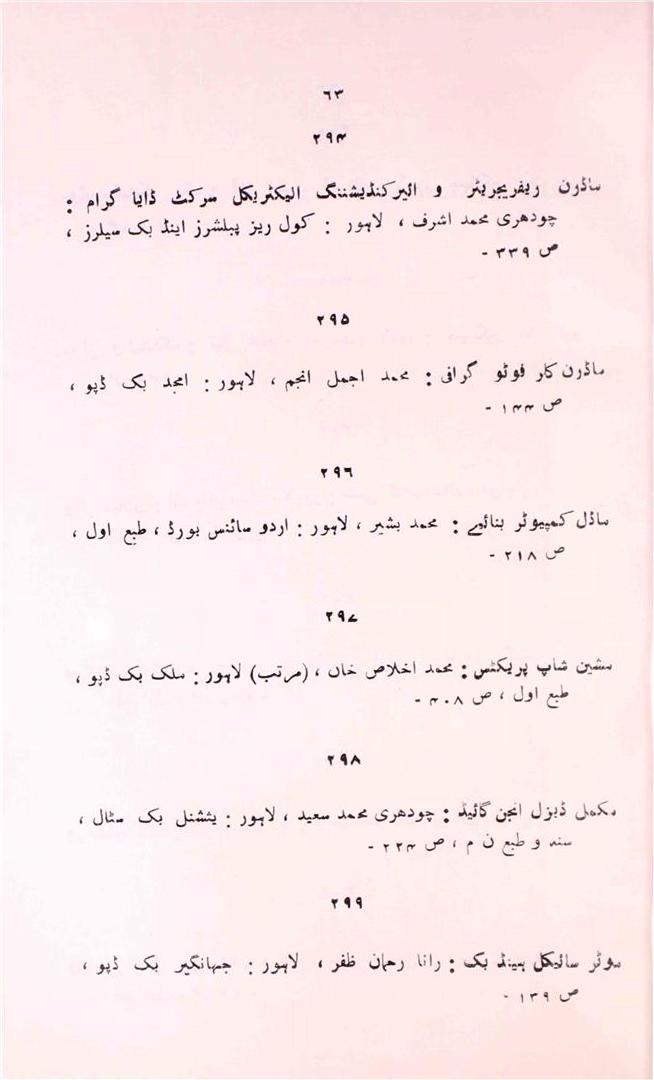 ۶۳
۲۹۴
ماڈرن ریفریجریٹر و ائیرکنڈیشننگ الیکٹریکل سرکٹ ڈایا گرام :
چودھری محمد اشرف ، لاہور : کول ریز پبلشرز اینڈ بک سیلرز ،
ص ۳۳۹ -
۲۹۵
ماڈرن کلر فوٹو گرافی : محمد اجمل انجم ، لاہور : امجد بک ڈپو ،
ص ۱۴۴ -
۲۹۶
ماڈل کمپیوٹر بنائیے : محمد بشیر ، لاہور : اردو سائنس بورڈ ، طبع اول ،
ص ۲۱۸ -
۲۹۷
مشین شاپ پریکٹس : محمد اخلاص خاں ، (مرتب) لاہور : ملک بک ڈپو ،
طبع اول ، ص ۴۰۸ -
۲۹۸
مکمل ڈیزل انجن گائیڈ : چودھری محمد سعید ، لاہور : نیشنل بک سٹال ،
سند و طبع ن م ، ص ۲۲۴ -
۲۹۹
موٹر سائیکل ہینڈ بک : رانا رحمان ظفر ، لاہور : جہانگیر بک ڈپو ،
ص ۱۳۹ -